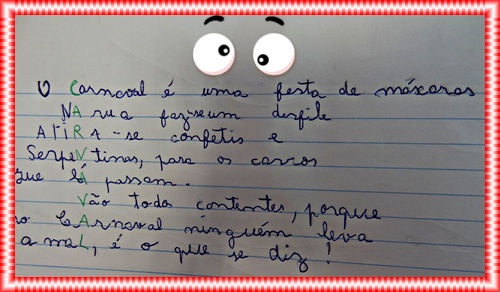 O Carnaval é uma festa de máscaras
NA rua faz-se um desfile
ATIRA-se confetis e
Serpentinas, para os carros
que lá passam.
Vão todos contentes, porque
no CArnaval ninguém leva
a maL, é o que se diz!